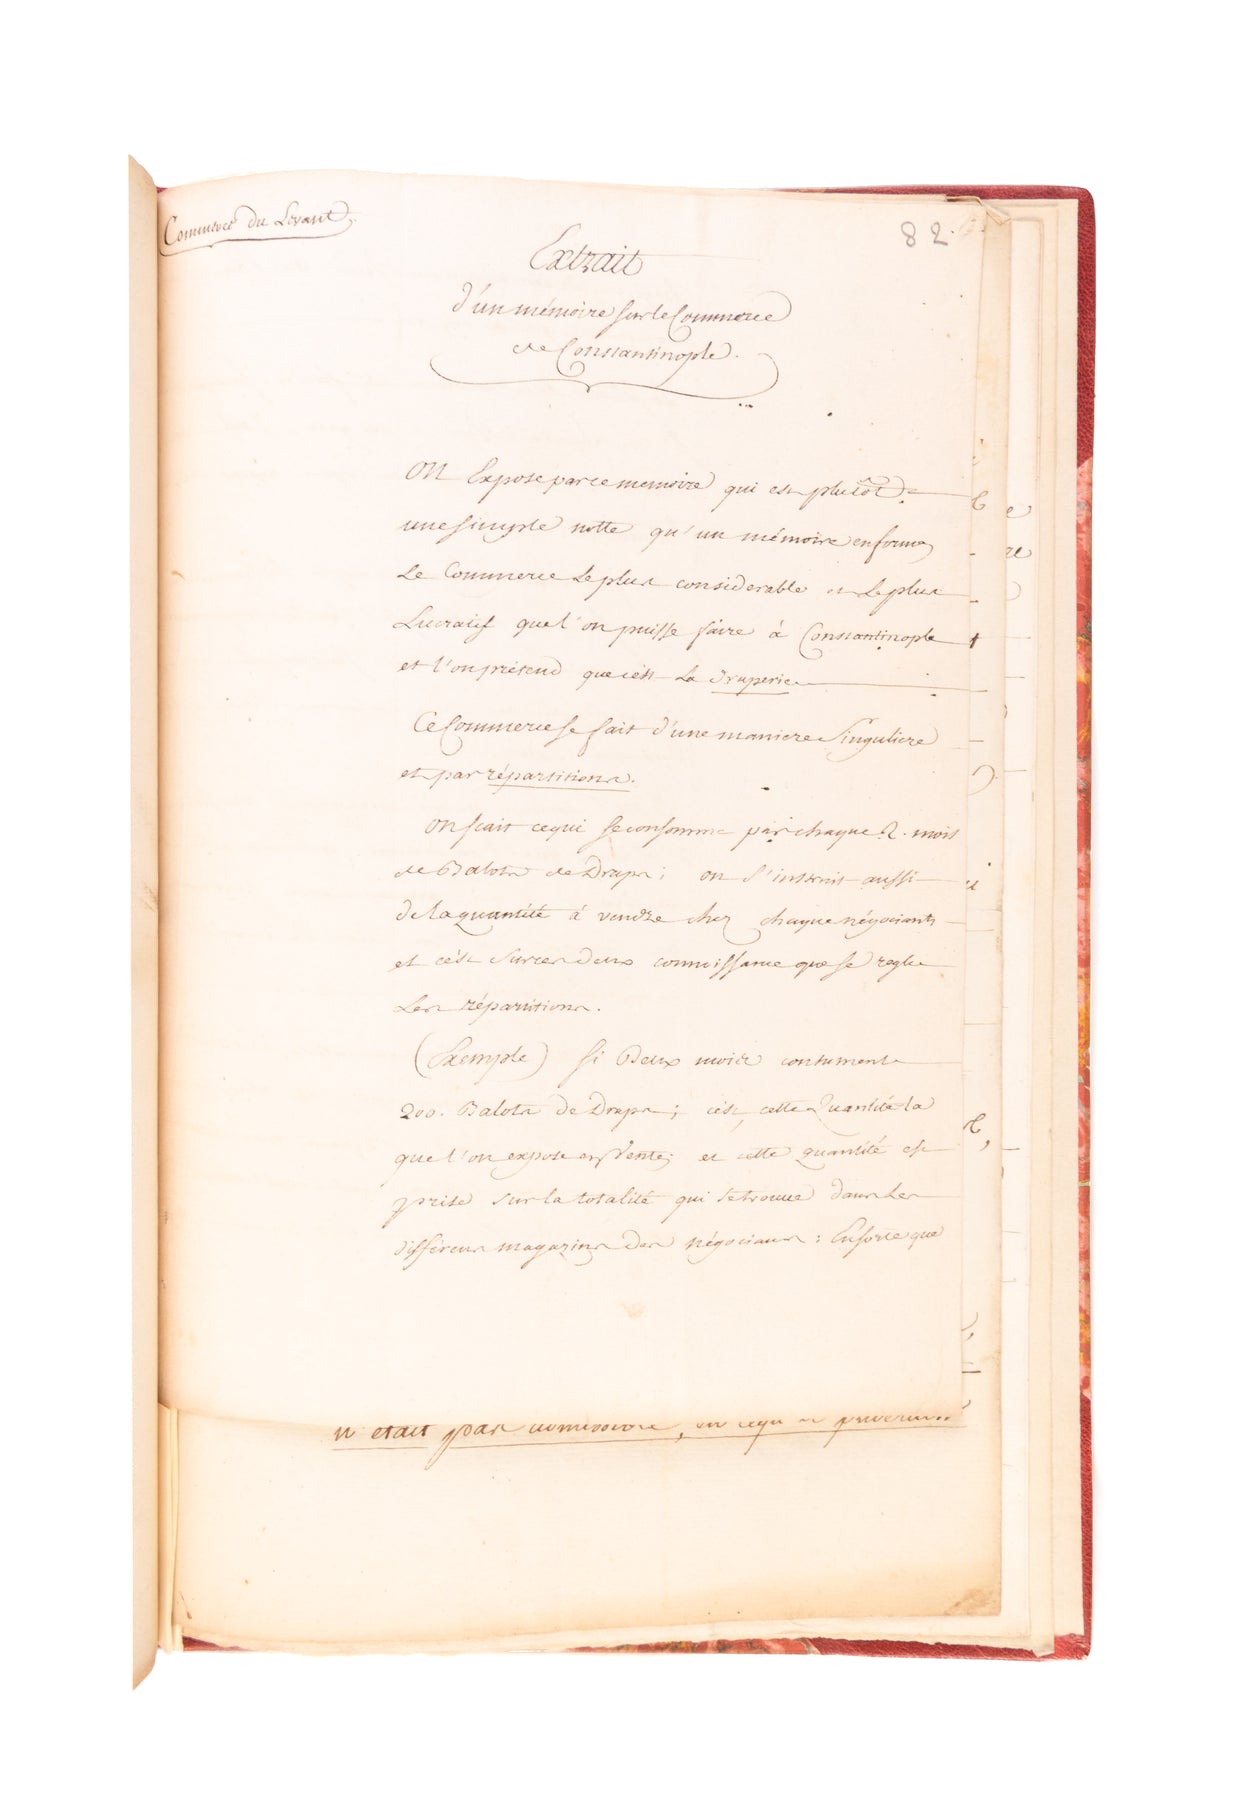 Commerce du Levant.
82.
Extrait
d'un mémoire sur le Commerce
de Constantinople.
On Expose par ce memoire qui est plutôt
une simple notte qu'un mémoire en forme
Le Commerce Le plus considerable et Le plus
Lucratif que l'on puisse faire à Constantinople
et l'on prétend que c'est La draperie
Ce Commerce se fait d'une maniere Singuliere
et par répartitions.
On scait ce qui se consomme par chaque 2. mois
de Balots de Draps; on s'instruit aussi
de la quantité à vendre chez chaque négociants
et c'est sur ces deux connoissance que se regle
Les répartitions.
(Exemple) si Deux mois consument
200. Balots de Draps; c'est, cette Quantité la
que l'on expose en Vente; et cette quantité est
prise sur la totalité qui se trouve dans Les
différens magazins des négocians: Ensorte que
n'etait pas